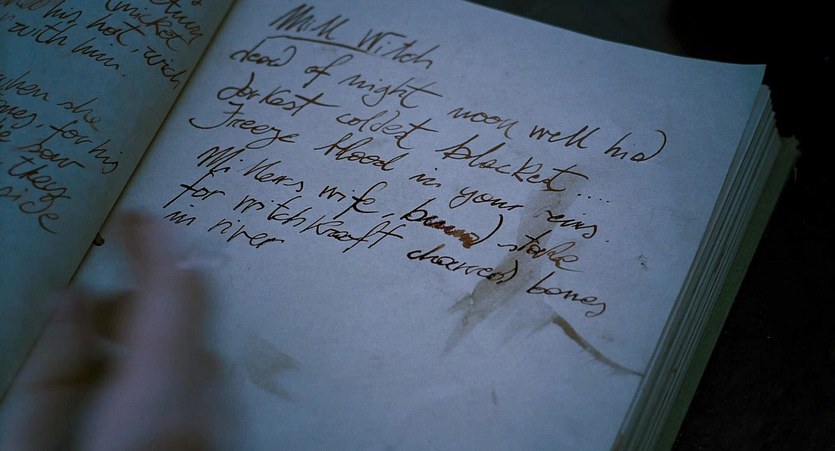 his hat, with
with him.
when she
for his
they
Mill Witch
dead of night moon well hid
darkest coldest blackest....
Freeze blood in your veins.
Millers wife, burned stake
for witchkraft charred bones
in river